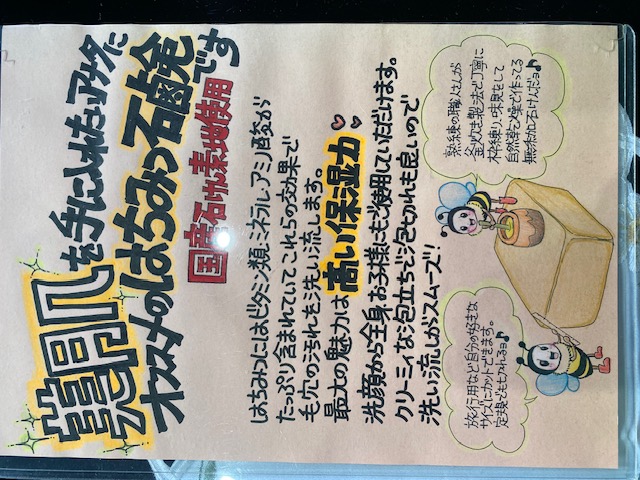 艶肌を手に入れたいアナタに
オススメのはちみつ石鹸です
国産石けん素地使用
はちみつにはビタミン類、ミネラル、アミノ酸が
たっぷり含まれていてこれらの効果で
毛穴の汚れを洗い流します。
最大の魅力は高い保湿力♡♡
洗顔から全身お子様にもご使用していただけます。
クリーミィな泡立ちで泡切れも良いので
洗い流しがスムーズ!
熟練の職人さんが
釜炊き製法で丁寧に
枠練り、味見をして
自然乾燥で作ってる
無添加石けんだョ♪
旅行用など自分の好きな
サイズにカットできます。
定規でも切れるョ♪